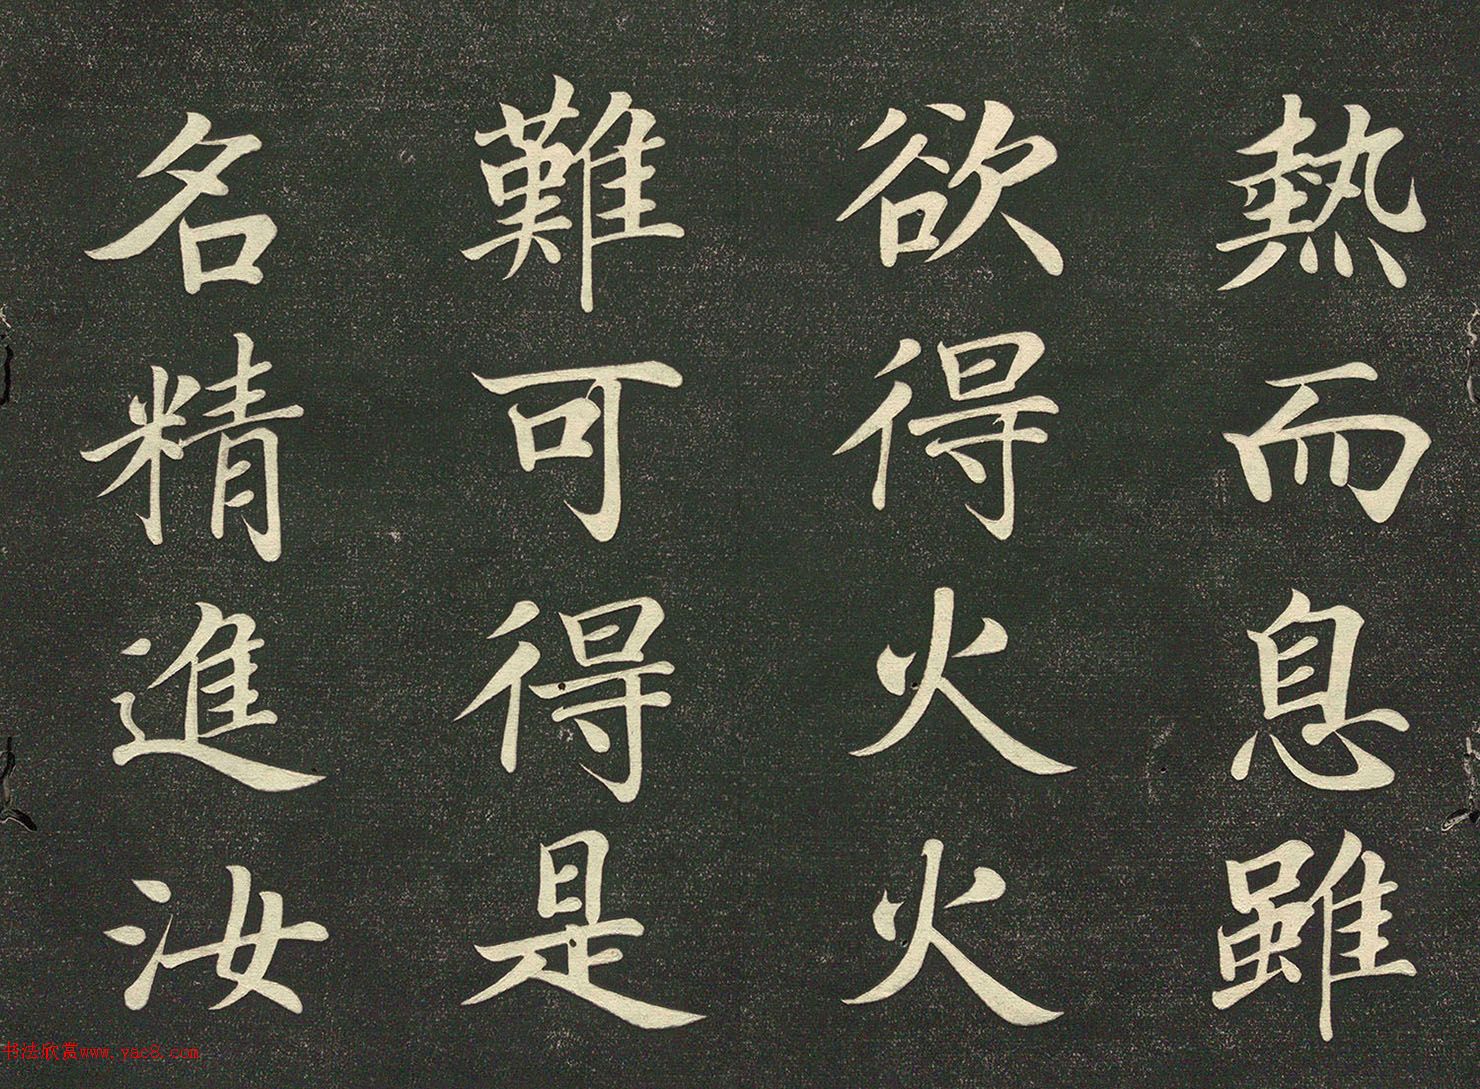 熱而息雖
欲得火火
難可得是
名精進汝
书法欣赏www.yac8.com